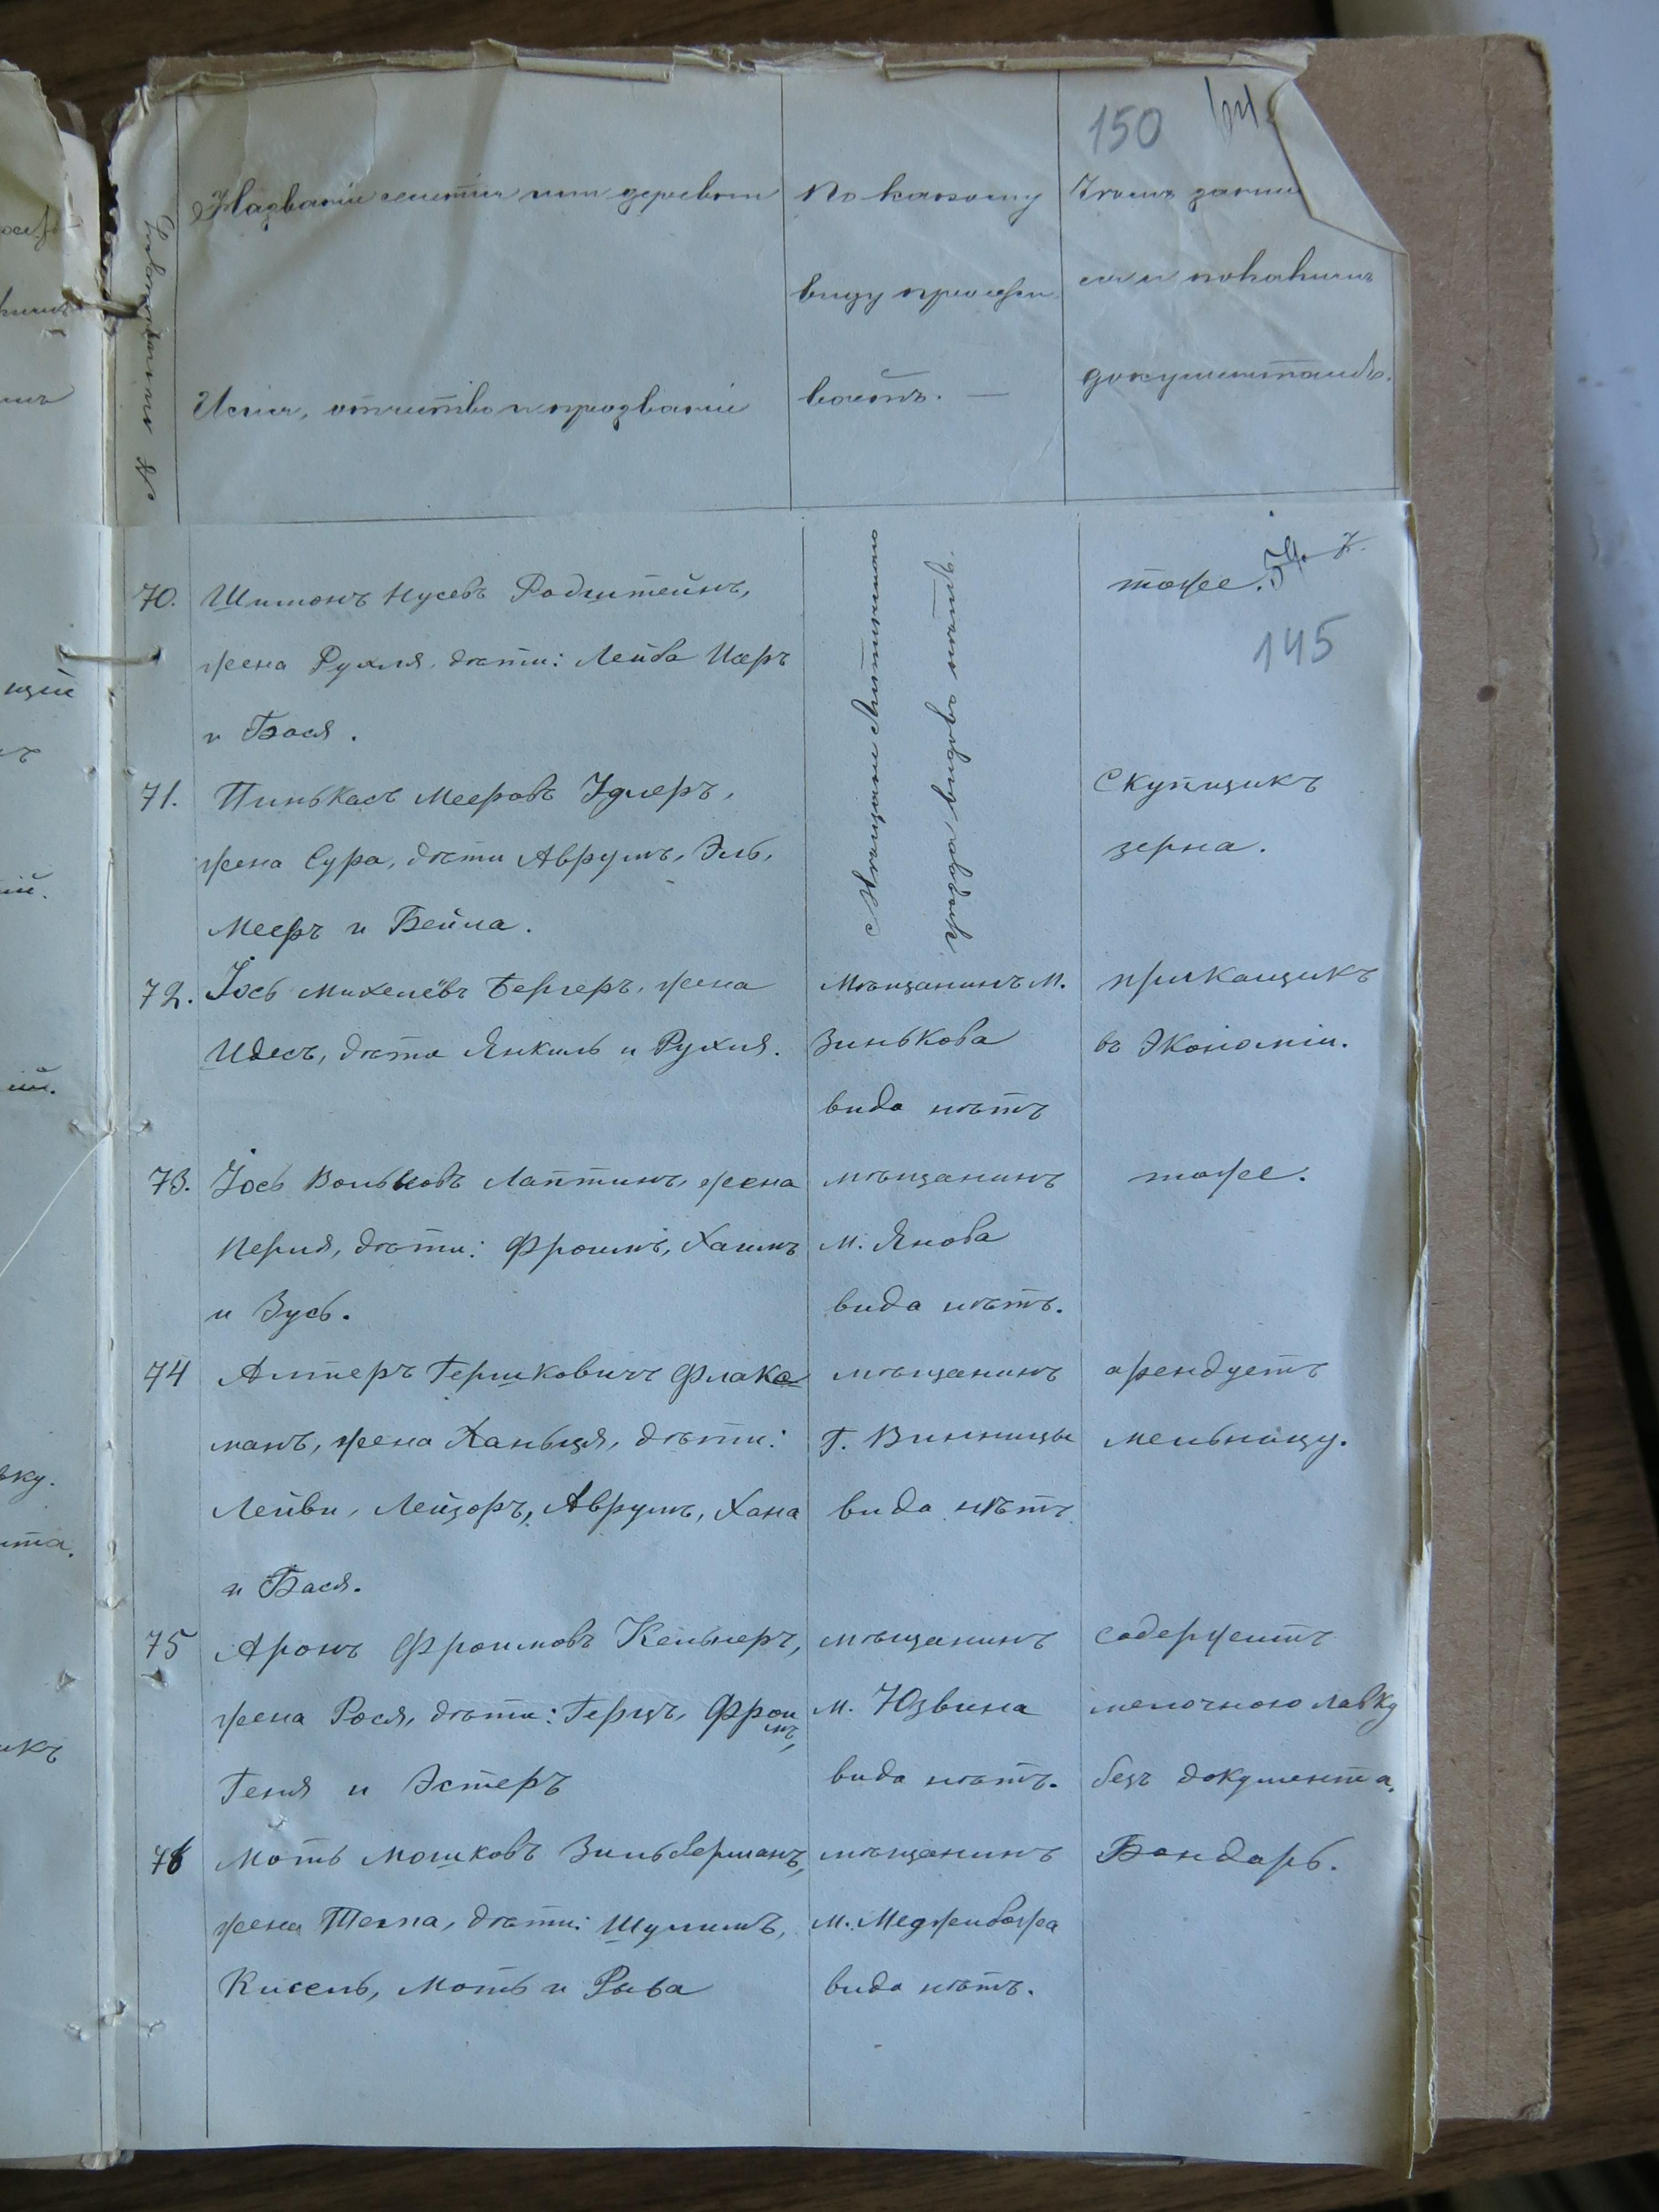 150
Названіе селенія или деревни
Имя, отчество и прозваніе
По какому
виду прожи
ваетъ. —
документамъ.
54
145
70. Шимонъ Нусевъ Родштейнъ,
жена Рухля, дѣти: Лейба Иеръ
и Бася.
Мѣщане Литинского
уѣзда видовъ нѣтъ.
тоже.
71. Пинькасъ Мееровъ Удлеръ,
жена Сура, дѣти Аврумъ, Эль,
Мееръ и Бейла.
Скупщикъ
зерна.
72. Іось Михелёвъ Бергеръ, жена
Идесъ, дѣти Янкиль и Рухля.
Мѣщанинъ м.
Зинькова
вида нѣтъ
прикащикъ
въ Экономіи.
73. Іось Вольковъ Лаптинъ, жена
Перля, дѣти: Фроимъ, Хаимъ
и Зусь.
мѣщанинъ
м. Янова
вида нѣтъ.
тоже.
74 Алтеръ Гершковичъ Флакс
манъ, жена Ханьця, дѣти:
Лейви, Лейзоръ, Аврумъ, Хана
и Бася.
мѣщанинъ
г. Винницы
вида нѣтъ
арендуетъ
мельницу.
75 Аронъ Фроимовъ Кельнеръ,
жена Рося, дѣти: Герцъ, Фрои
мъ,
Геня и Эстеръ
мѣщанинъ
м. Юзвина
вида нѣтъ.
содержитъ
мелочною лавку
безъ документа.
76 Моть Мошковъ Зильберманъ,
жена Темпа, дѣти: Шулимъ,
Кисель, Моть и Рыва
мѣщанинъ
м. Меджибожа
вида нѣтъ.
Бондарь.